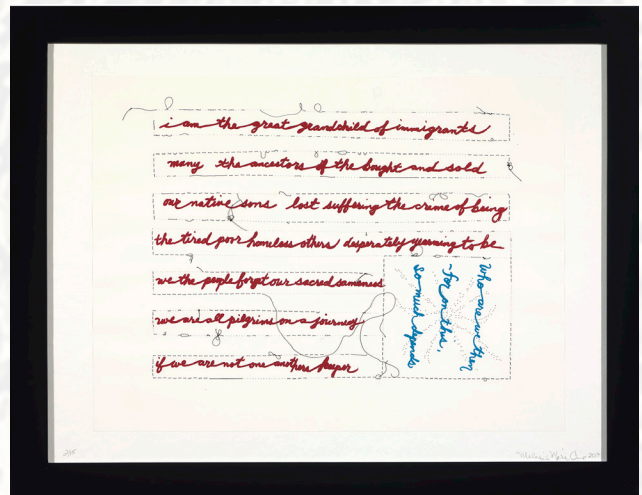 i am the great grandchild of immigrants
many the ancestors of the bought and sold
our native sons lost suffering the crime of being
the tired poor homeless others desperately yearning to be
we the people forgot our sacred sameness
we are all pilgrims on a journey
if we are not one anothers keeper
who are we then
~for on this,
so much depends